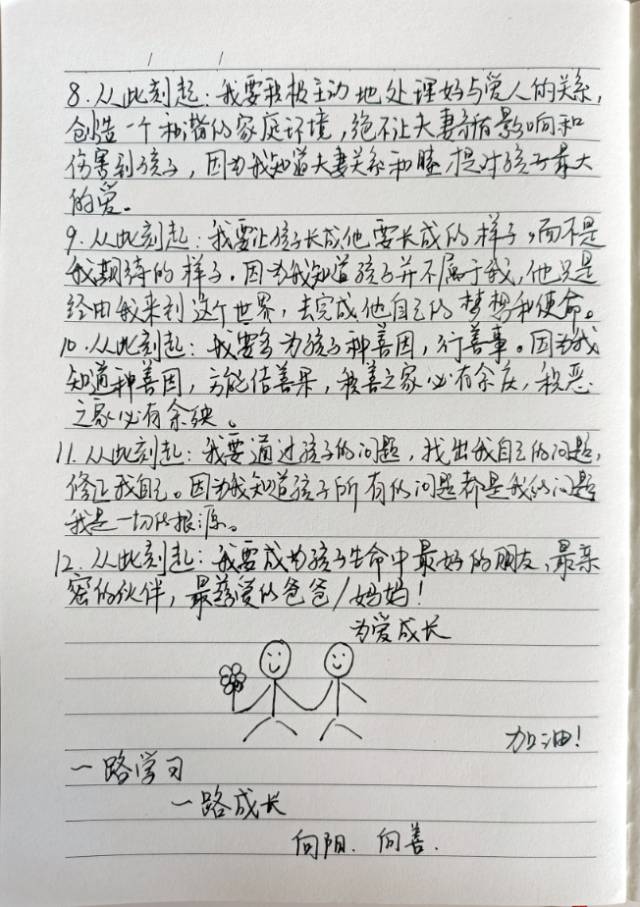 8.从此刻起:我要积极主动地处理好与爱人的关系,
创造一个和谐的家庭环境,绝不让夫妻矛盾影响和
伤害到孩子,因为我知道夫妻关系和睦,是对孩子最大
的爱。
9.从此刻起:我要让孩子长成他要长成的样子,而不是
我期待的样子.因为我知道孩子并不属于我,他只是
经由我来到这个世界,去完成他自己的梦想和使命。
10.从此刻起:我要多为孩子种善因,行善事。因为我
知道种善因,方能结善果,积善之家必有余庆,积恶
之家必有余殃。
11.从此刻起:我要通过孩子的问题,找出我自己的问题,
修正我自己。因为我知道孩子所有的问题都是我的问题
我是一切的根源。
12.从此刻起:我要成为孩子生命中最好的朋友、最亲
密的伙伴,最慈爱的爸爸/妈妈!
为爱成长
加油!
一路学习
一路成长
向阳.向善.